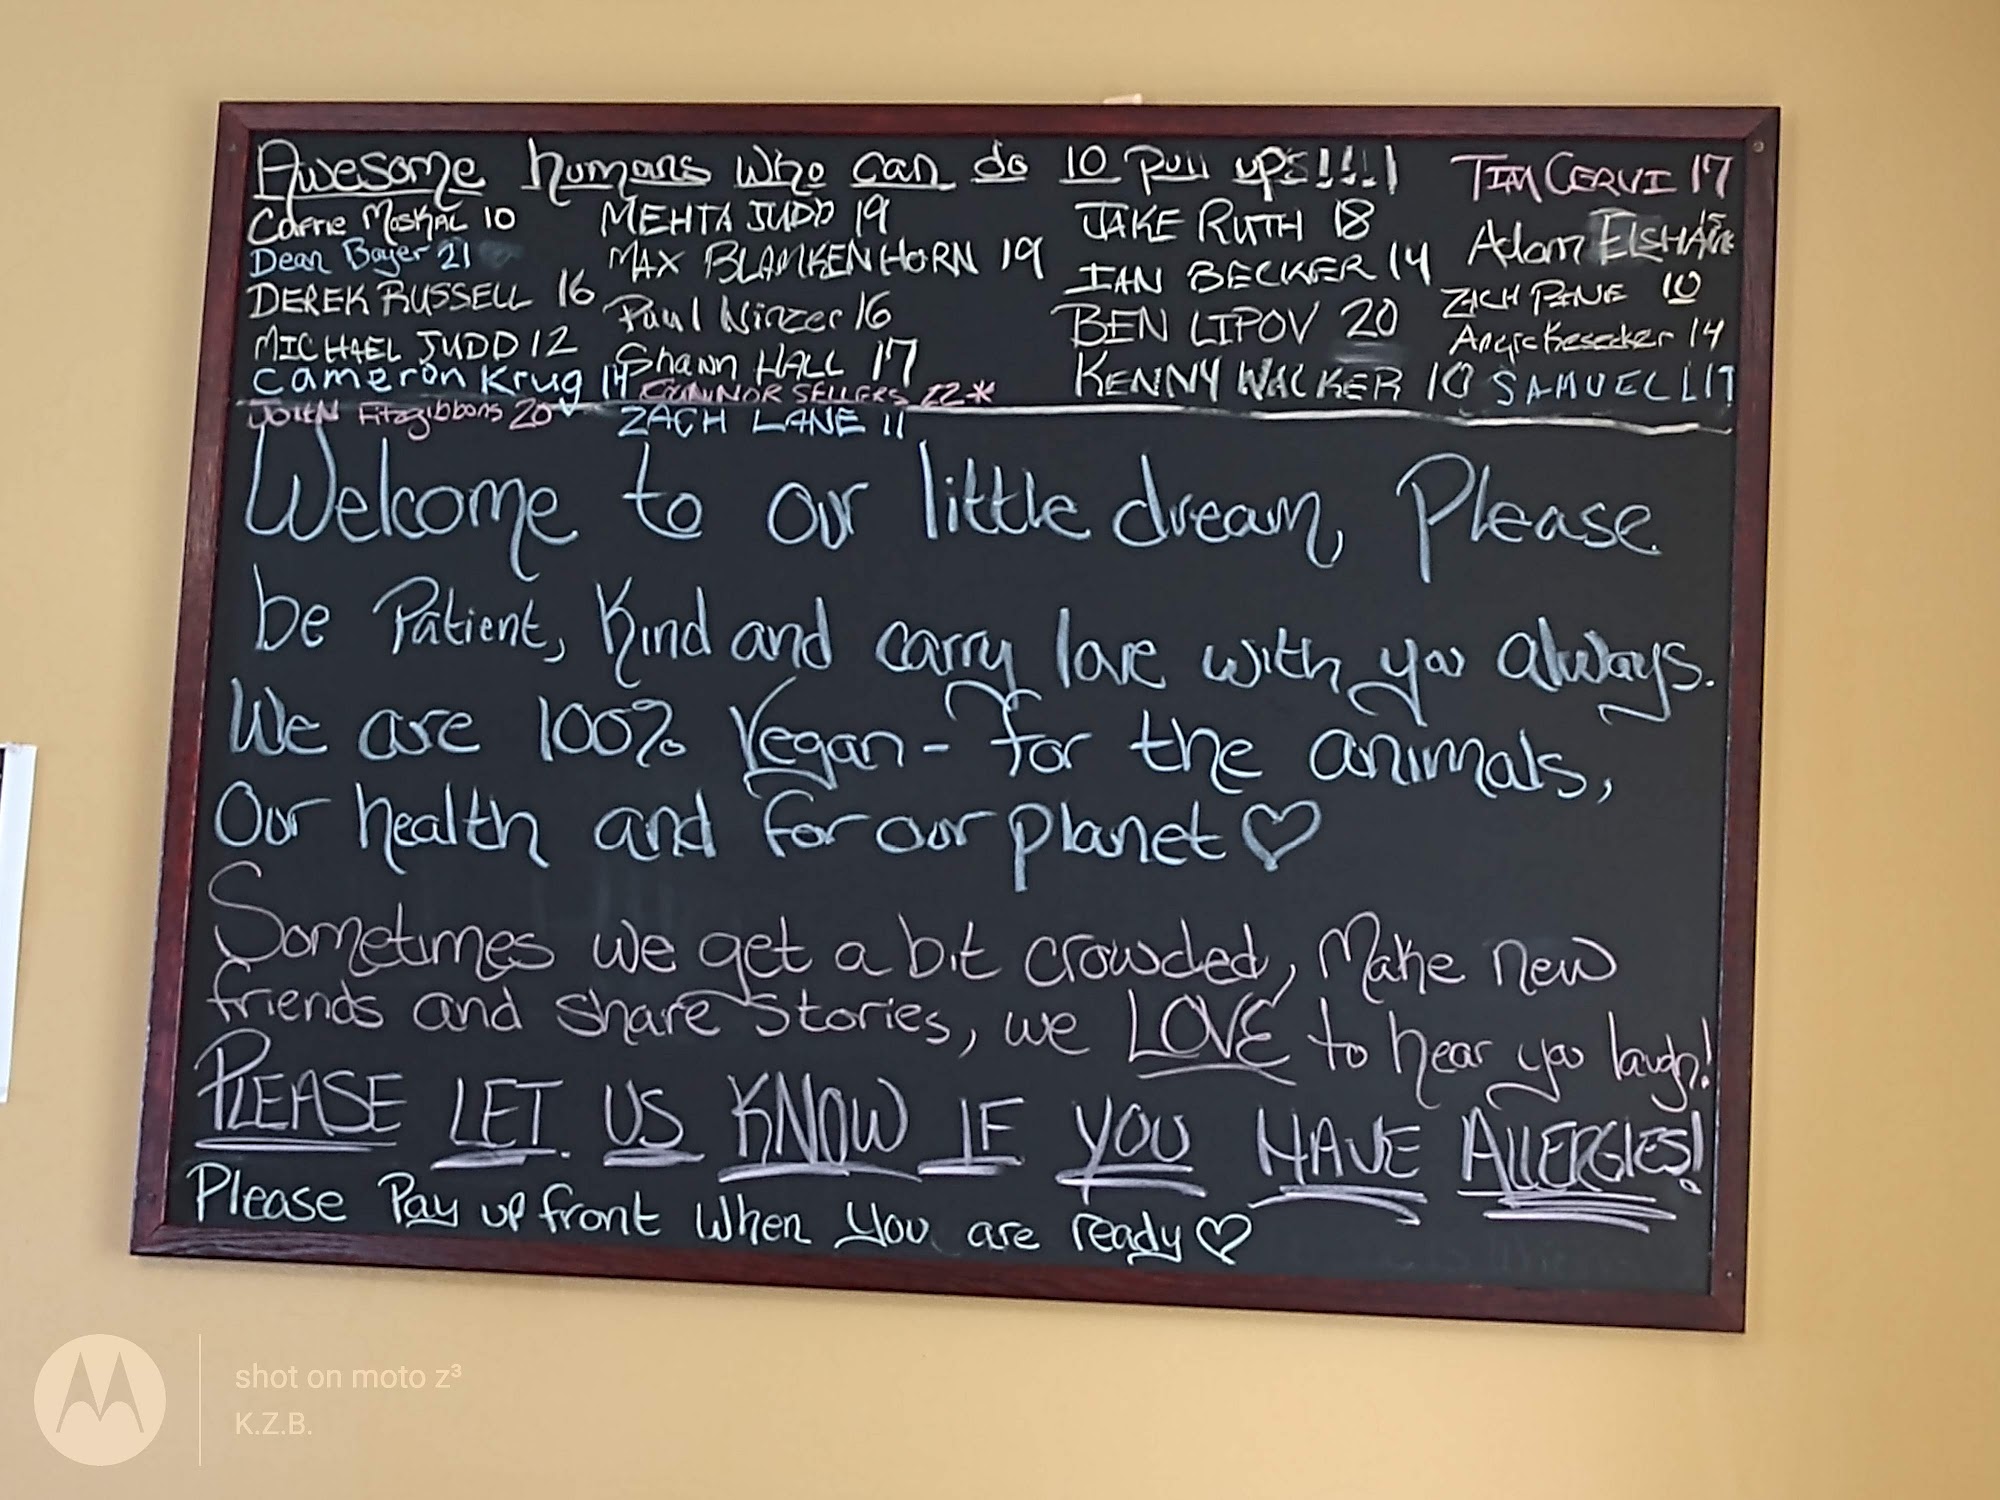 Awesome humans who can do 10 Pull ups!!!!
Carrie Moskal 10
Dean Bayer 21
DEREK RUSSELL 16
MICHAEL JUDD 12
Cameron Krug 14
JOHN Fitzgibbons 20
MEHTA JUDD 19
MAX BLANKENHORN 19
Paul Winzer 16
Shawn HALL 17
CONNOR SELLERS 22*
ZACH LANE 11
JAKE RUTH 18
IAN BECKER 14
BEN LIPOV 20
KENNY WALKER 10
TIM CERVI 17
Adam 15
ZACH PANE 10
Angie Kesecker 14
SAMUEL L 17
Welcome to our little dream, Please
be Patient, Kind and carry love with you always.
We are 100% Vegan - for the animals,
Our health and for our planet ♡
Sometimes we get a bit crowded, Make new
friends and share stories, we LOVE to hear you laugh!
PLEASE LET US KNOW IF YOU HAVE ALLERGIES!
Please Pay up front when you are ready ♡
shot on moto z³
K.Z.B.